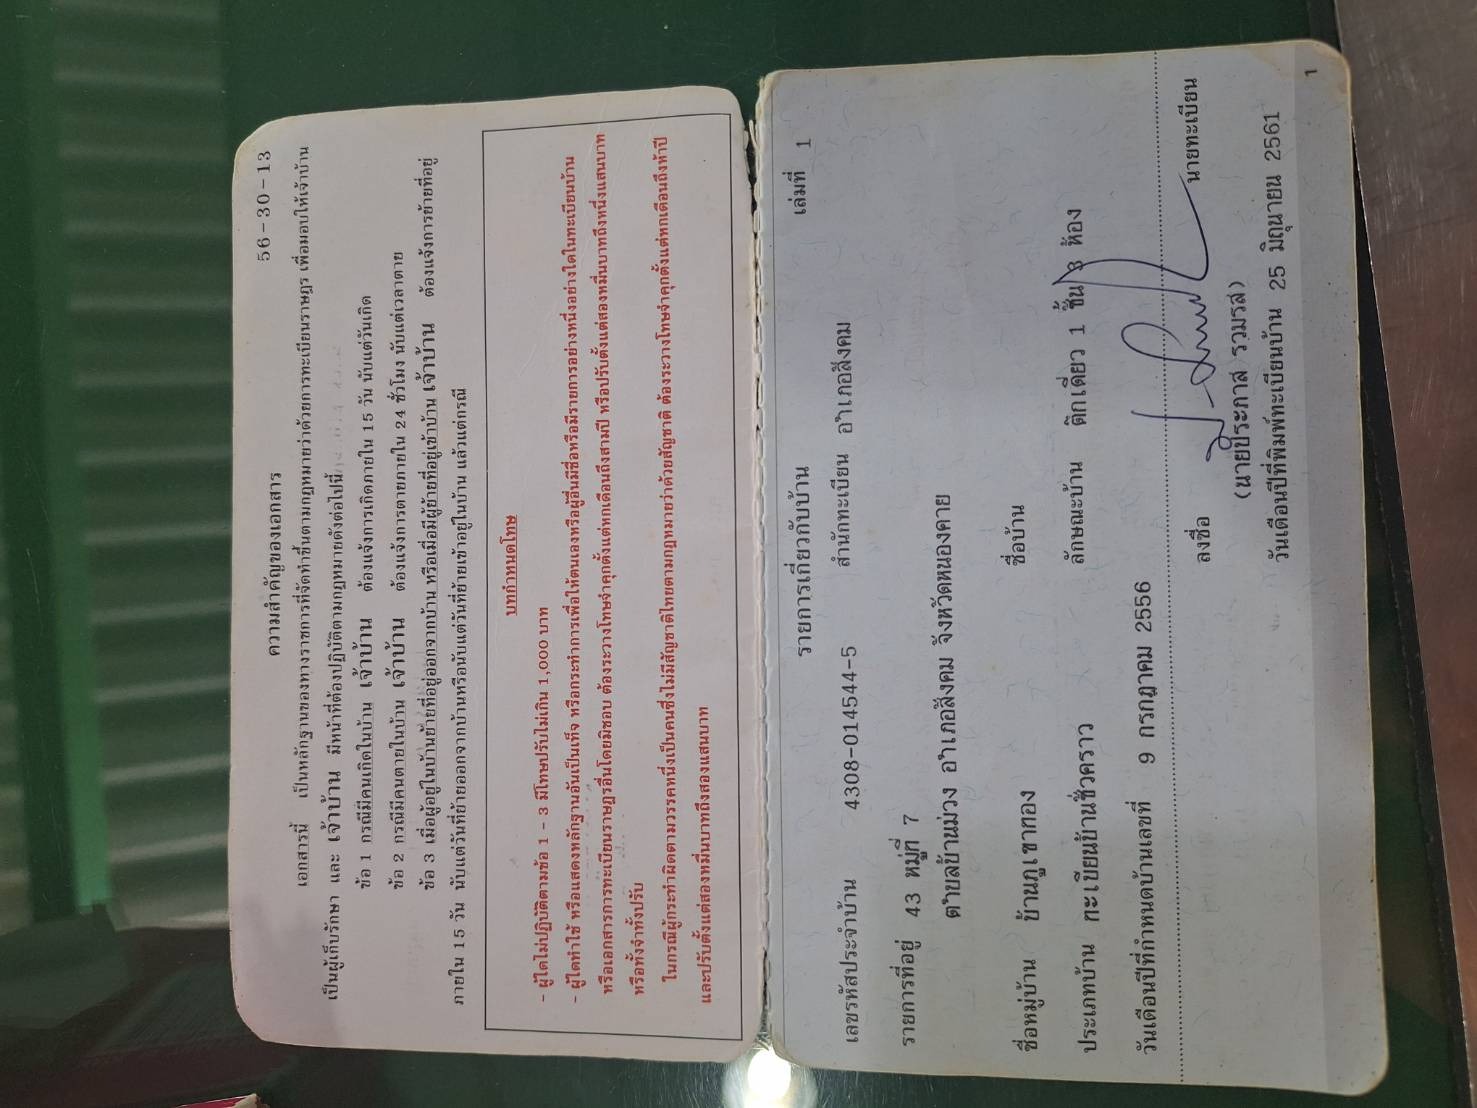 56-30-13
ความสำคัญของเอกสาร
เอกสารนี้ เป็นหลักฐานของทางราชการที่จัดทำขึ้นตามกฎหมายว่าด้วยการทะเบียนราษฎร เพื่อมอบให้เจ้าบ้าน
เป็นผู้เก็บรักษา และ เจ้าบ้าน มีหน้าที่ต้องปฏิบัติตามกฎหมายดังต่อไปนี้
ข้อ 1 กรณีมีคนเกิดในบ้าน เจ้าบ้าน ต้องแจ้งการเกิดภายใน 15 วัน นับแต่วันเกิด
ข้อ 2 กรณีมีคนตายในบ้าน เจ้าบ้าน ต้องแจ้งการตายภายใน 24 ชั่วโมง นับแต่เวลาตาย
ข้อ 3 เมื่อผู้อยู่ในบ้านย้ายที่อยู่ออกจากบ้าน หรือเมื่อมีผู้ย้ายที่อยู่เข้าบ้าน เจ้าบ้าน ต้องแจ้งการย้ายที่อยู่
ภายใน 15 วัน นับแต่วันที่ย้ายออกจากบ้านหรือนับแต่วันที่ย้ายเข้าอยู่ในบ้าน แล้วแต่กรณี
บทกำหนดโทษ
- ผู้ใดไม่ปฏิบัติตามข้อ 1 - 3 มีโทษปรับไม่เกิน 1,000 บาท
- ผู้ใดทำใช้ หรือแสดงหลักฐานอันเป็นเท็จ หรือกระทำการเพื่อให้ตนเองหรือผู้อื่นมีชื่อหรือมีรายการอย่างหนึ่งอย่างใดในทะเบียนบ้าน
หรือเอกสารการทะเบียนราษฎรอื่นโดยมิชอบ ต้องระวางโทษจำคุกตั้งแต่หกเดือนถึงสามปี หรือปรับตั้งแต่สองหมื่นบาทถึงหนึ่งแสนบาท
หรือทั้งจำทั้งปรับ
ในกรณีผู้กระทำผิดตามวรรคหนึ่งเป็นคนซึ่งไม่มีสัญชาติไทยตามกฎหมายว่าด้วยสัญชาติ ต้องระวางโทษจำคุกตั้งแต่หกเดือนถึงห้าปี
และปรับตั้งแต่สองหมื่นบาทถึงสองแสนบาท
รายการเกี่ยวกับบ้าน เล่มที่ 1
เลขรหัสประจำบ้าน 4308-014544-5 สำนักทะเบียน อำเภอสังคม
รายการที่อยู่ 43 หมู่ที่ 7
ตำบลบ้านม่วง อำเภอสังคม จังหวัดหนองคาย
ชื่อหมู่บ้าน บ้านภูเขาทอง ชื่อบ้าน
ประเภทบ้าน ทะเบียนบ้านชั่วคราว ลักษณะบ้าน ตึกเดี่ยว 1 ชั้น 3 ห้อง
วันเดือนปีที่กำหนดบ้านเลขที่ 9 กรกฎาคม 2556
ลงชื่อ นายทะเบียน
(นายประภาส รวมรส)
วันเดือนปีที่พิมพ์ทะเบียนบ้าน 25 มิถุนายน 2561
1